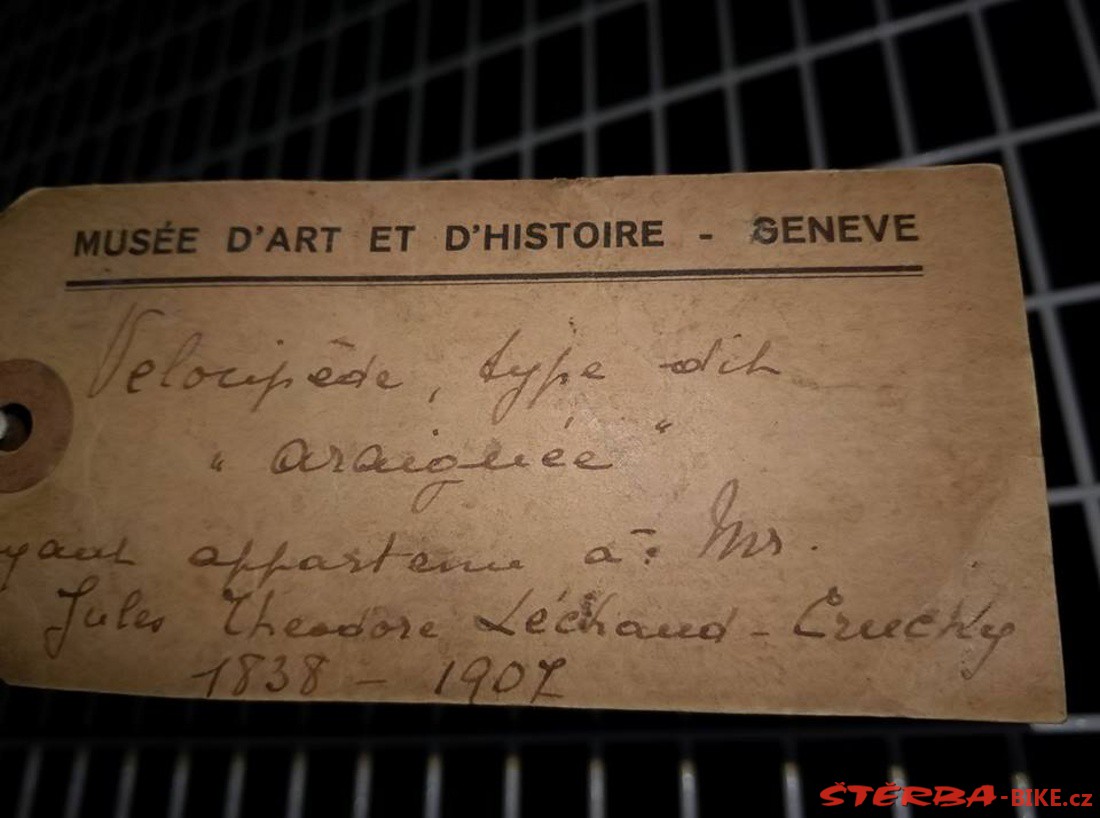 MUSÉE D'ART ET D'HISTOIRE - GENEVE
Velocipède, type dit
"araignée"
yant appartenu à: Mr.
Jules Theodore Léchaud - Cruchy
1838 - 1907
ŠTĚRBA-BIKE.cz